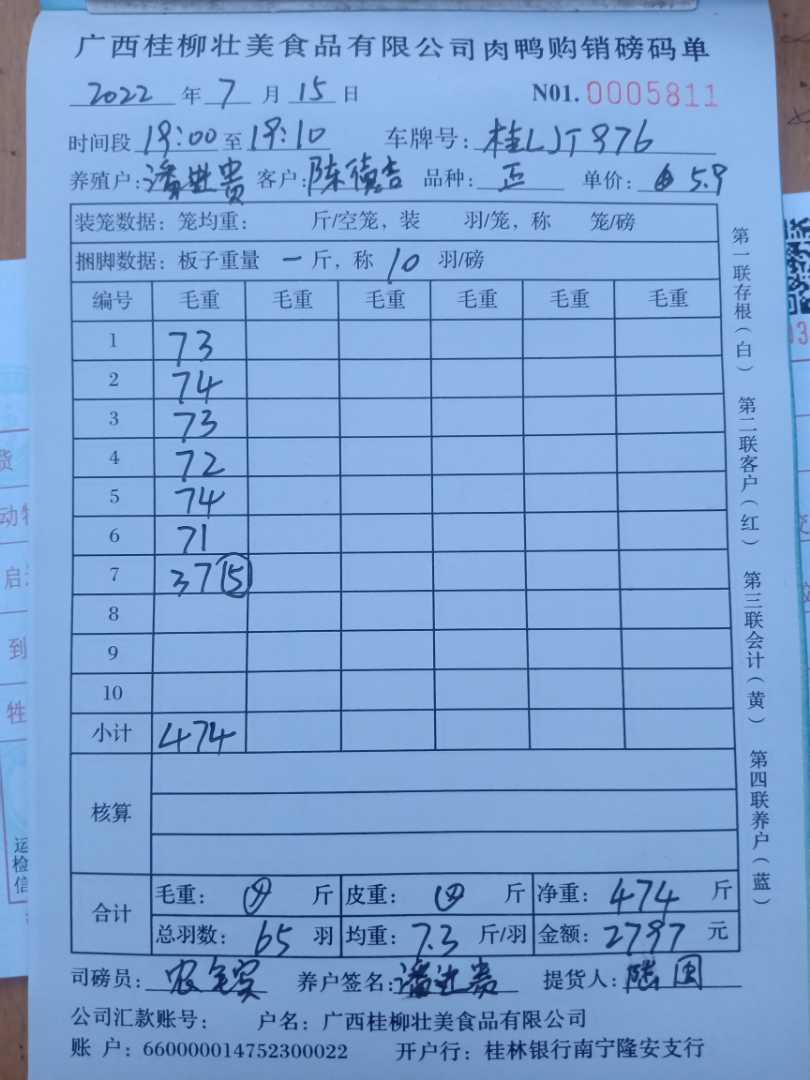 广西桂柳壮美食品有限公司肉鸭购销磅码单
2022 年 7 月 15 日 N01. 0005811
时间段 19:00 至 19:10 车牌号: 桂LJT976
养殖户: 潘进贵 客户: 陈德吉 品种: 正 单价: 5.9
装笼数据: 笼均重: 斤/空笼, 装 羽/笼, 称 笼/磅
捆脚数据: 板子重量 一 斤, 称 10 羽/磅
编号 毛重 毛重 毛重 毛重 毛重 毛重
1 73
2 74
3 73
4 72
5 74
6 71
7 37 15
8
9
10
小计 474
核算
合计 毛重: 斤 皮重: 斤 净重: 474 斤
总羽数: 65 羽 均重: 7.3 斤/羽 金额: 2797 元
司磅员: 农 养户签名: 潘进贵 提货人: 陆国
公司汇款账号: 户名: 广西桂柳壮美食品有限公司
账 户: 660000014752300022 开户行: 桂林银行南宁隆安支行
第一联存根(白) 第二联客户(红) 第三联会计(黄) 第四联养户(蓝)